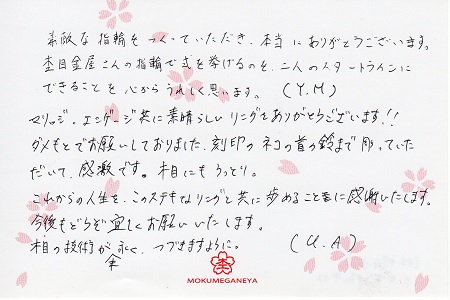 素敵な指輪をつくっていただき、本当にありがとうございます。
杢目金屋さんの指輪で式を挙げるのを、二人のスタートラインに
できることを心からうれしく思います。 (Y.M)
マリッジ・エンゲージ共に素晴らしいリングをありがとうございます!!
ダメもとでお願いしておりました、刻印のネコの首の鈴まで彫っていた
だいて、感激です。木目にもうっとり。
これからの人生を、このステキなリングと共に歩めることに感謝いたします。
今後もどうぞ宜しくお願いいたします。
木目の技術が永く、つづきますように。 (U.A)
MOKUMEGANEYA